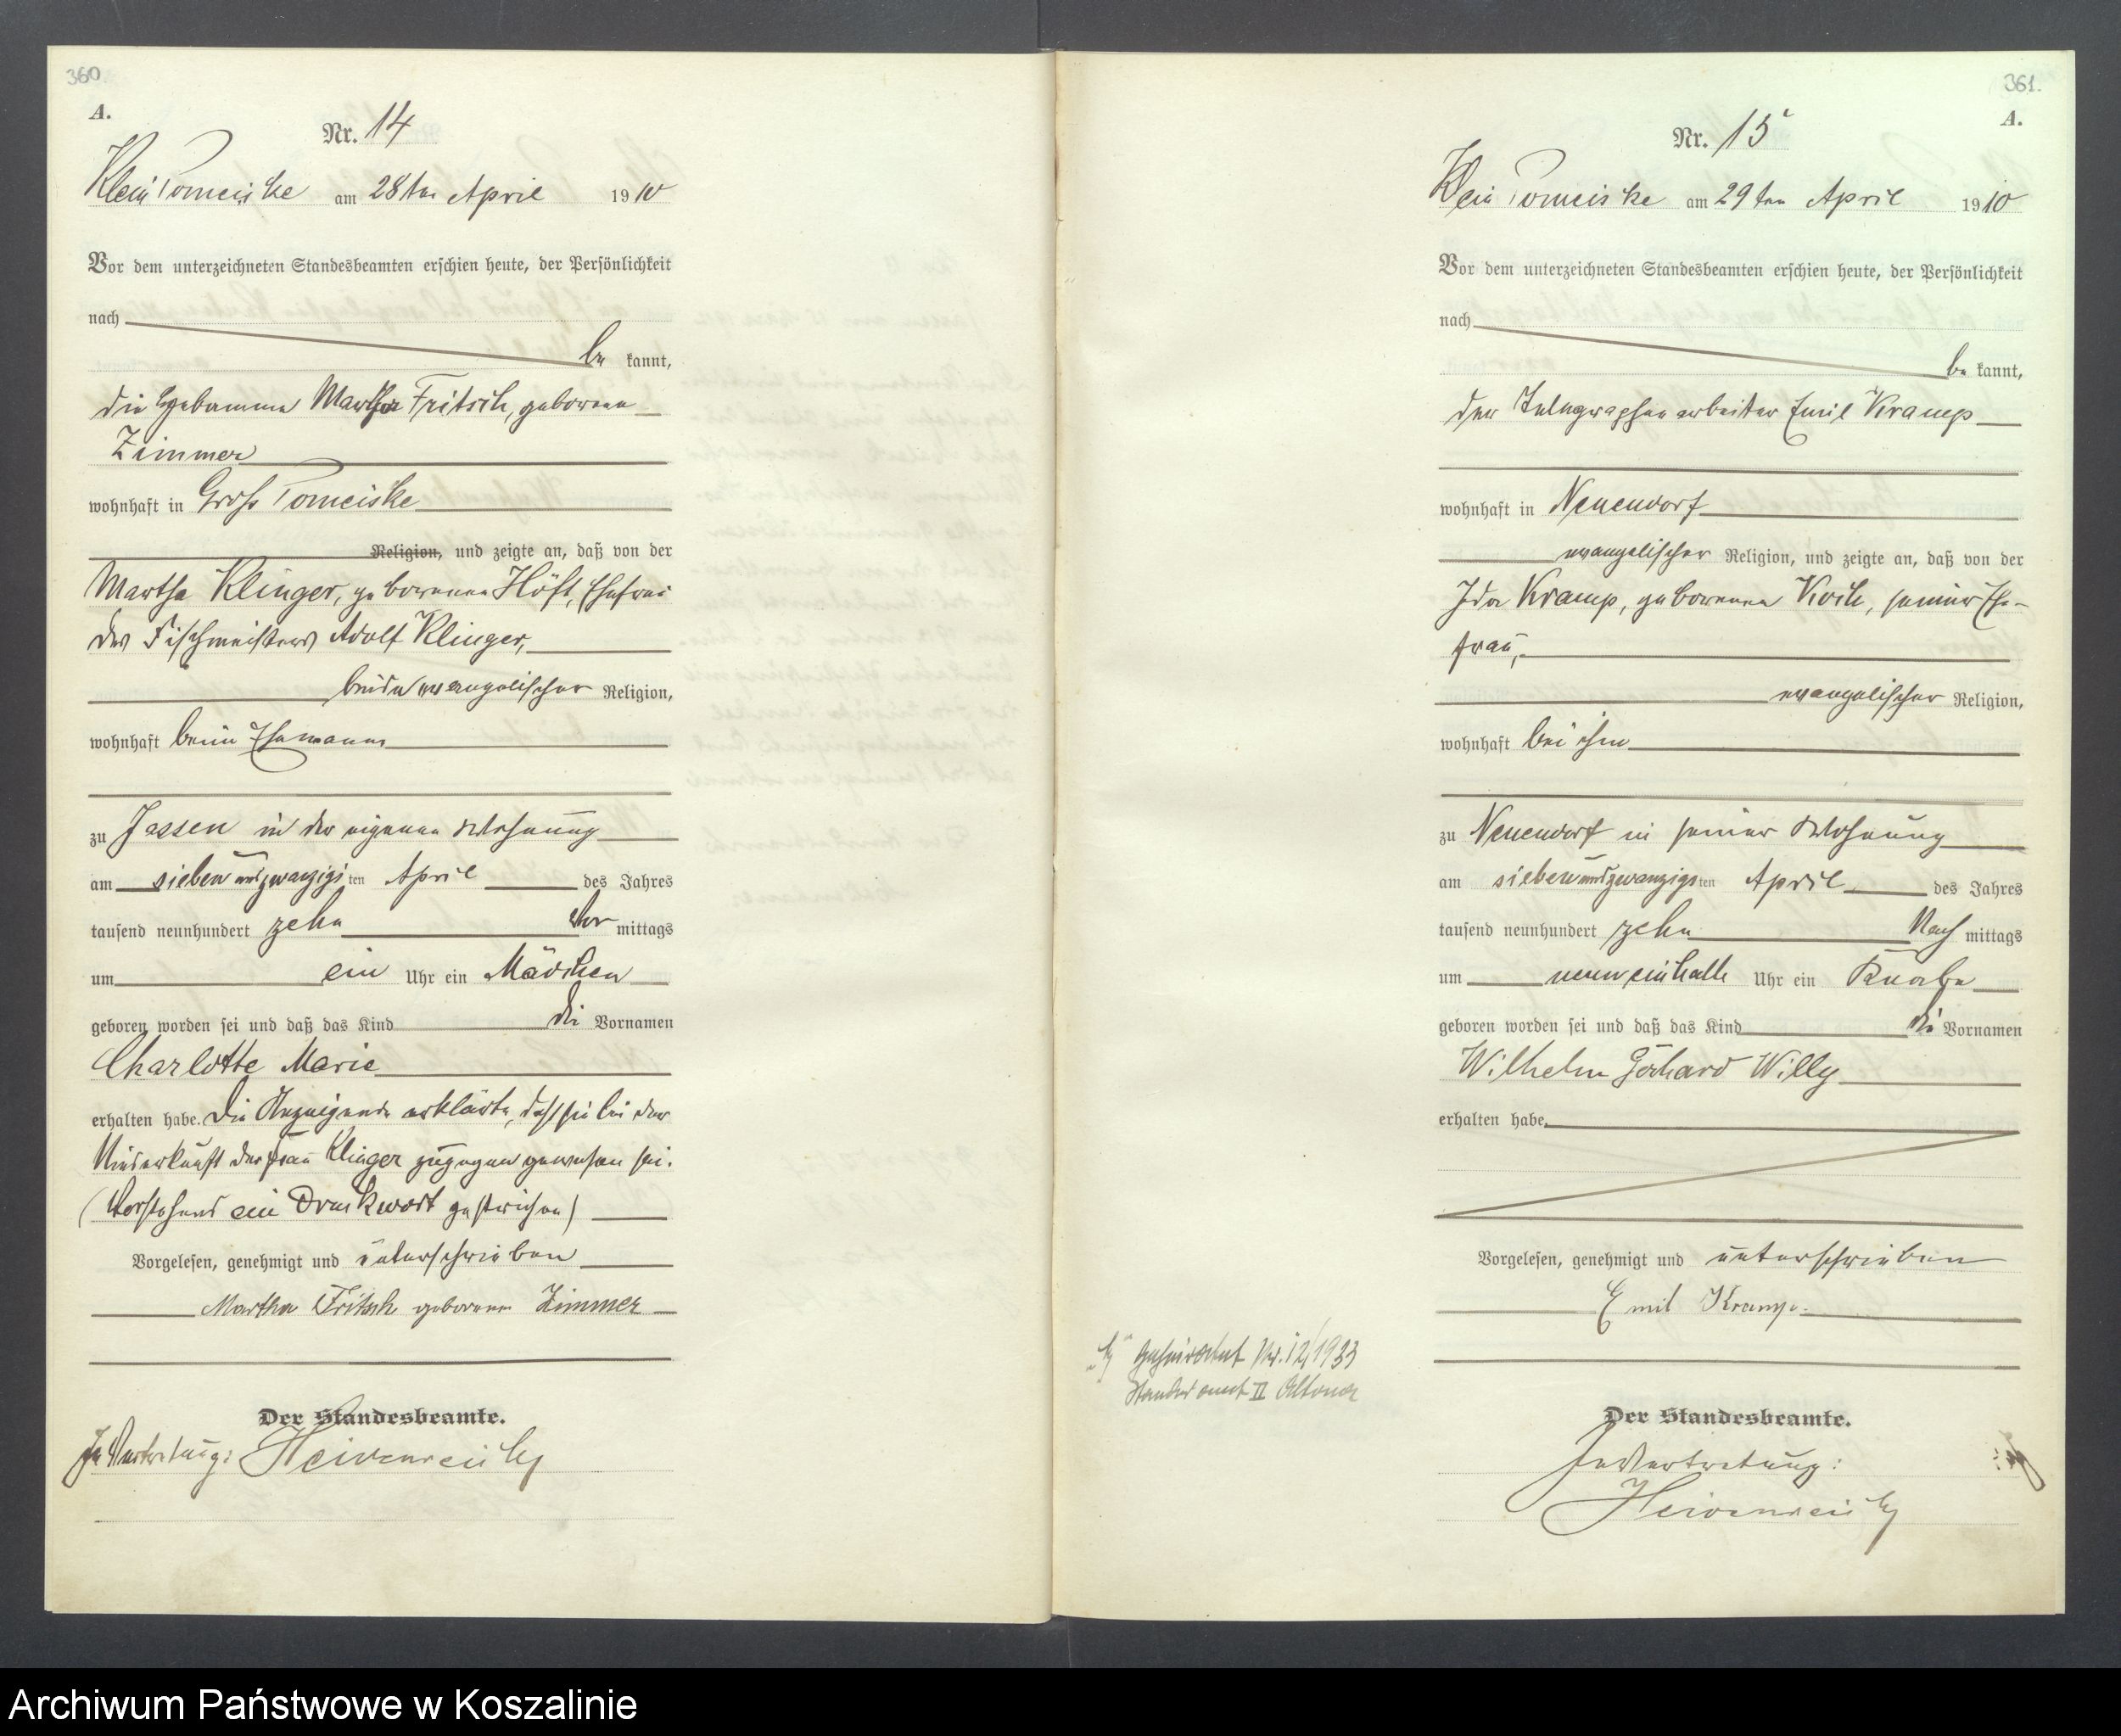 360.
A.
Nr. 14
Klein Pomeiske am 28ten April 1910
Vor dem unterzeichneten Standesbeamten erschien heute, der Persönlichkeit
nach
be kannt,
die Hebamme Martha Fritsch, geborene
Zimmer
wohnhaft in Groß Pomeiske
Religion, und zeigte an, daß von der
Martha Klinger, geborenen Höft, Ehefrau
des Fischmeisters Adolf Klinger,
beide evangelischer Religion,
wohnhaft beim Ehemann
zu Jassen in der eigenen Wohnung
am siebenundzwanzigsten April des Jahres
tausend neunhundert zehn Vor mittags
um ein Uhr ein Mädchen
geboren worden sei und daß das Kind die Vornamen
Charlotte Marie
erhalten habe. Die Anzeigende erklärte, daß sie bei der
Niederkunft der Frau Klinger zugegen gewesen sei.
(Vorstehend ein Druckwort gestrichen)
Vorgelesen, genehmigt und unterschrieben
Martha Fritsch geborene Zimmer
Der Standesbeamte.
In Vertretung: Heidenreich
361.
A.
Nr. 15
Klein Pomeiske am 29ten April 1910
Vor dem unterzeichneten Standesbeamten erschien heute, der Persönlichkeit
nach
be kannt,
der Telegraphenarbeiter Emil Kramp
wohnhaft in Neuendorf
evangelischer Religion, und zeigte an, daß von der
Ida Kramp, geborenen Koch, seiner Ehe-
frau,
evangelischer Religion,
wohnhaft bei ihm
zu Neuendorf in seiner Wohnung
am siebenundzwanzigsten April des Jahres
tausend neunhundert zehn Nach mittags
um neuneinhalb Uhr ein Knabe
geboren worden sei und daß das Kind die Vornamen
Wilhelm Gerhard Willy
erhalten habe.
Vorgelesen, genehmigt und unterschrieben
Emil Kramp.
geheiratet Nr. 12/1933
Standesamt II Altona
Der Standesbeamte.
In Vertretung:
Heidenreich
Archiwum Państwowe w Koszalinie